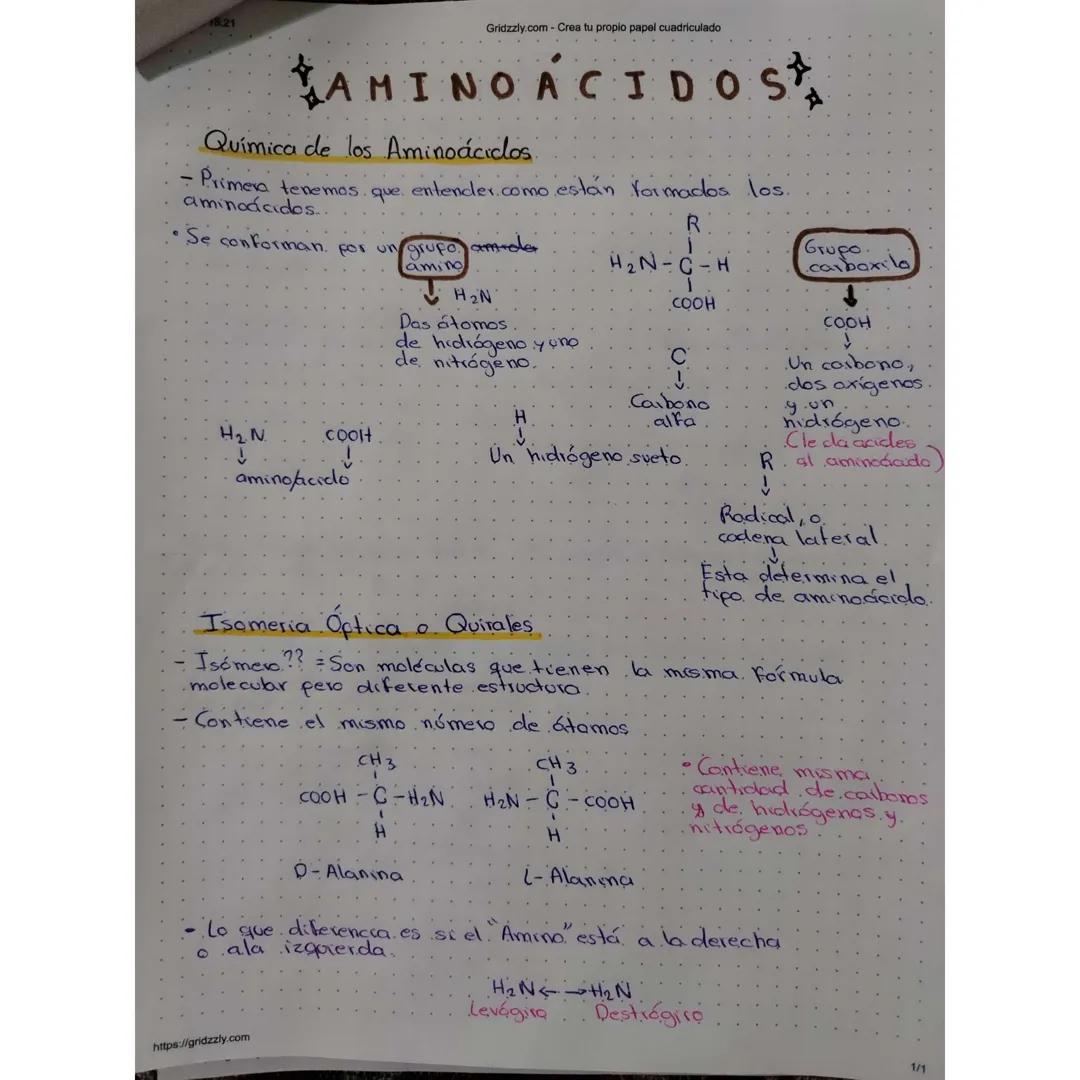 18:21
Gridzzly.com - Crea tu propio papel cuadriculado
AMINOÁCIDOS
Química de los Aminoácidos
- Primero tenemos que entender como están formados los
aminoácidos.
• Se conforman por un grupo
amino
H2N
Dos átomos
de hidrógeno y uno
de nitrógeno.
R
H2N-C-H
COOH
C
Carbono
alfa
Grupo
carboxilo
COOH
Un carbono,
dos oxígenos
y un
hidrógeno.
(le da acides
al aminoácido)
H2N COOH
amino/acido
H
Un hidrógeno sueto
R
Radical, o
cadena lateral
Esta determina el
tipo de aminoácido.
Isomeria Óptica o Quirales
- Isómero?? = Son moléculas que tienen la misma fórmula
molecular pero diferente estructura.
- Contiene el mismo número de átomos
CH3
COOH-C-H2N
H
D-Alanina
CH3
H2N-C-COOH
H
L-Alanina
• Contiene misma
cantidad de carbonos
y de hidrógenos y
nitrógenos
- Lo que diferencia es si el "Amino" está a la derecha
o ala izquierda.
H2N← →H2N
Levógiro Destrógiro
https://gridzzly.com
1/1